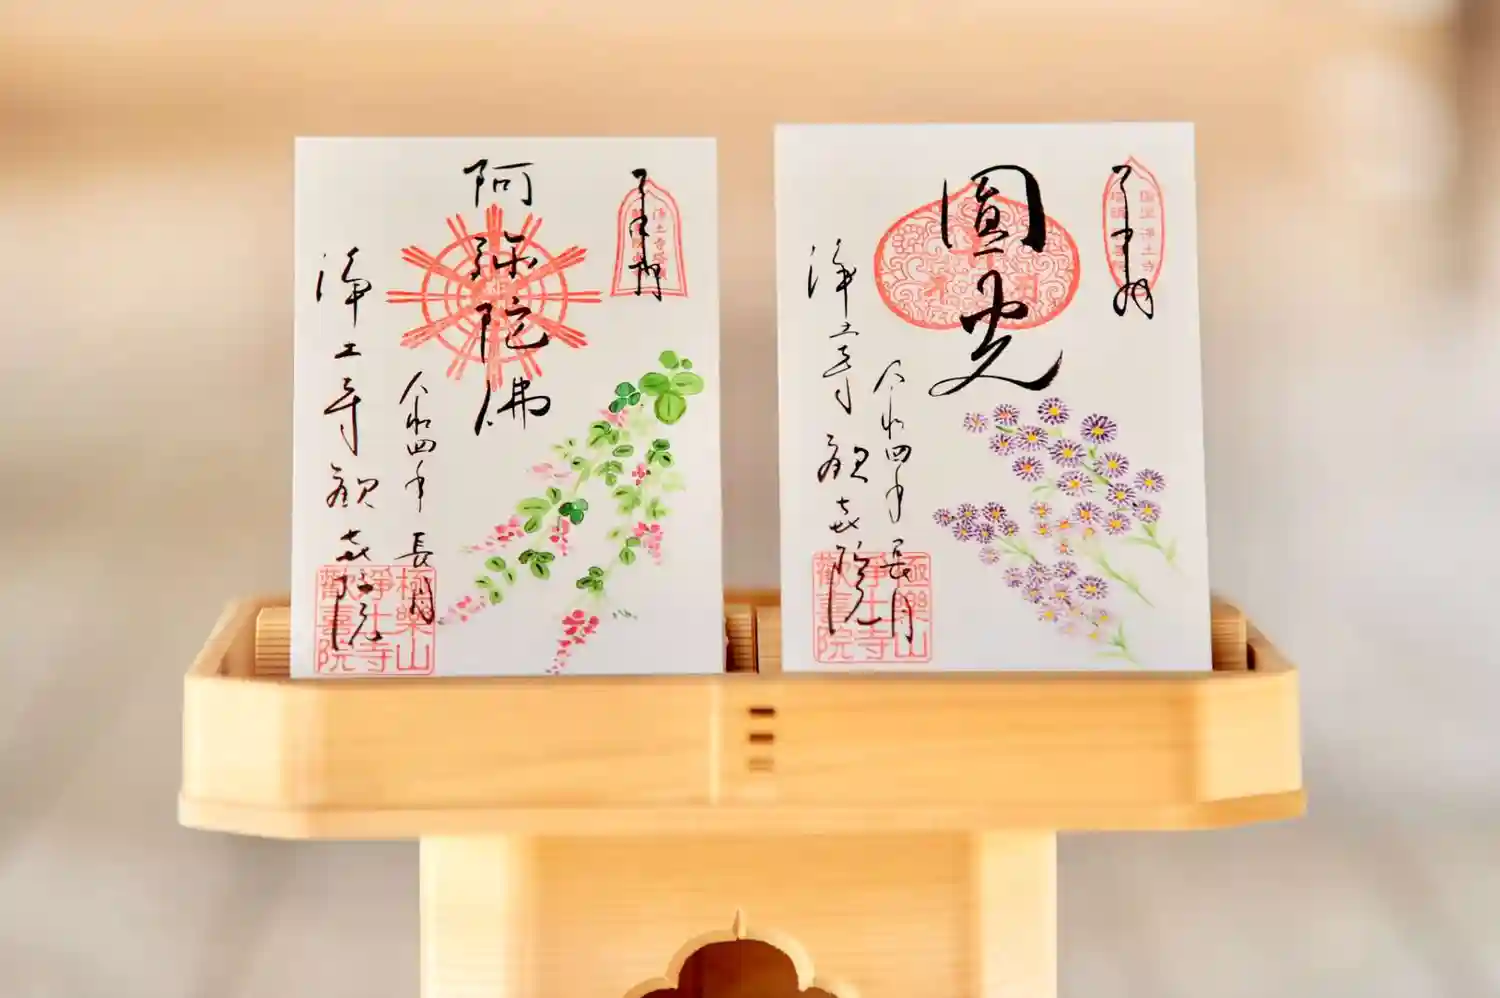 奉拝
阿弥陀佛
令和四年長月
浄土寺歓喜院
極樂山
淨土寺
歡喜院
奉拝
圓光
令和四年長月
浄土寺歓喜院
極樂山
淨土寺
歡喜院